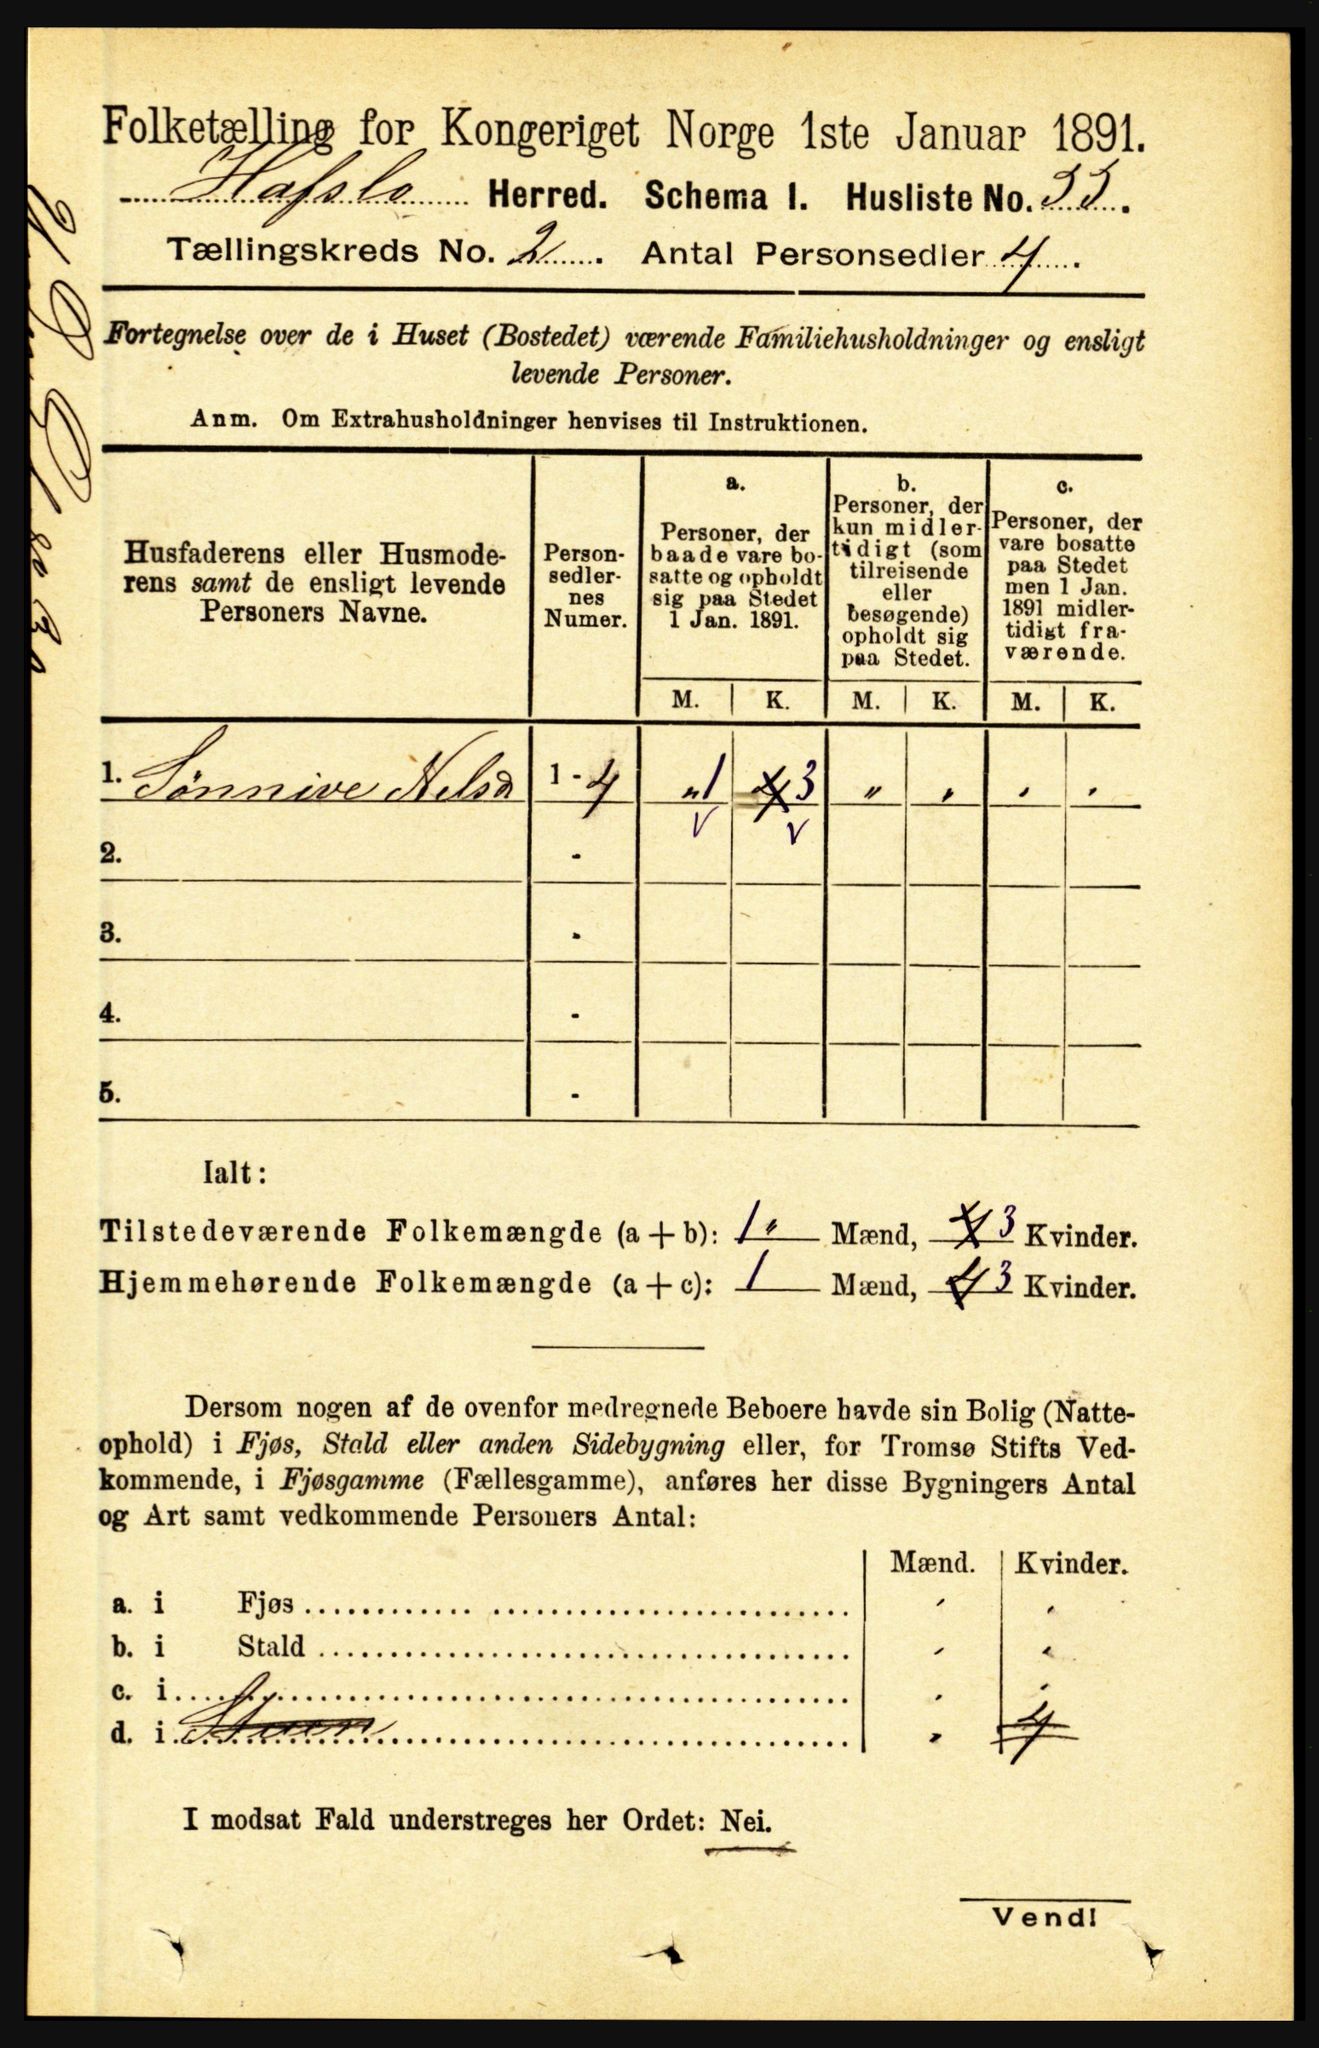 Folketælling for Kongeriget Norge 1ste Januar 1891.
Hafslo Herred. Schema I. Husliste No. 33.
Tællingskreds No. 2. Antal Personsedler 4.
Fortegnelse over de i Huset (Bostedet) værende Familiehusholdninger og ensligt
levende Personer.
Anm. Om Extrahusholdninger henvises til Instruktionen.
Husfaderens eller Husmode-
rens samt de ensligt levende
Personers Navne.
Person-
sedler-
nes
Numer.
a.
Personer, der
baade vare bo-
satte og opholdt
sig paa Stedet
1 Jan. 1891.
b.
Personer, der
kun midler-
tidigt (som
tilreisende
eller
besøgende)
opholdt sig
paa Stedet.
c.
Personer, der
vare bosatte
paa Stedet
men 1 Jan.
1891 midler-
tidigt fra-
værende.
M. K. M. K. M. K.
1. Sønnive Nelsd 1 - 4 " 1 4 3 " " " "
2. -
3. -
4. -
5. -
Ialt:
Tilstedeværende Folkemængde (a + b): 1 " Mænd, 4 3 Kvinder.
Hjemmehørende Folkemængde (a + c): 1 Mænd, 4 3 Kvinder.
Dersom nogen af de ovenfor medregnede Beboere havde sin Bolig (Natte-
ophold) i Fjøs, Stald eller anden Sidebygning eller, for Tromsø Stifts Ved-
kommende, i Fjøsgamme (Fællesgamme), anføres her disse Bygningers Antal
og Art samt vedkommende Personers Antal:
Mænd. Kvinder.
a. i Fjøs
b. i Stald
c. i
d. i 4
I modsat Fald understreges her Ordet: Nei.
Vend!